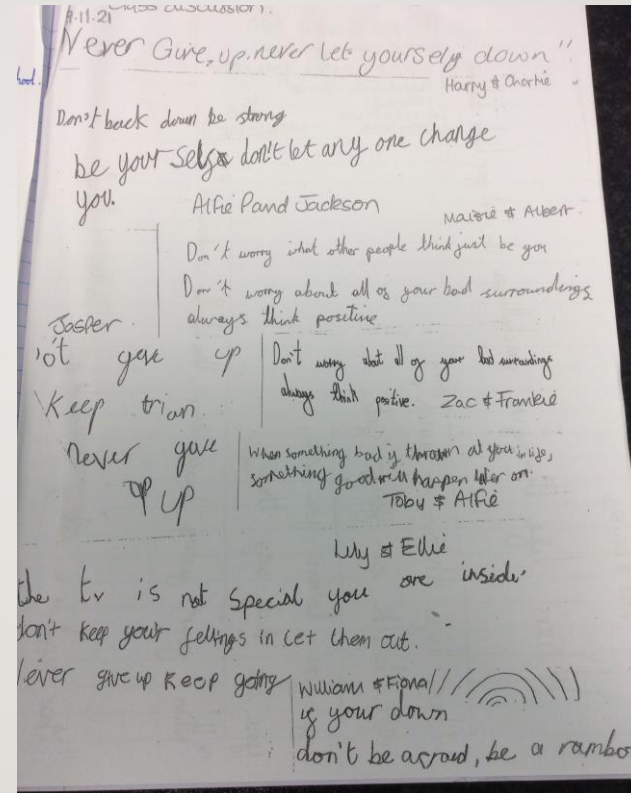 class discussion.
9.11.21
"Never Give, up. never let yourself down"
Harry & Charlie
hool.
Don't back down be strong
be your self don't let any one change
you.
Alfie P and Jackson
Maisie & Albert.
Don't worry what other people think just be you
Don't worry about all of your bad surroundings
always think positive
Jasper.
ot geve up
Keep trian.
never give
up up
Don't worry abot all of your bad surroundings
always think positive. Zac & Frankie
When something bad is thrown at you in life,
something good will happen later on.
Toby & Alfie
Lily & Ellie
the tv is not special you are inside.
don't keep your fellings in let them out.
Never give up keep going
William & Fiona
if your down
don't be afraid, be a rambo